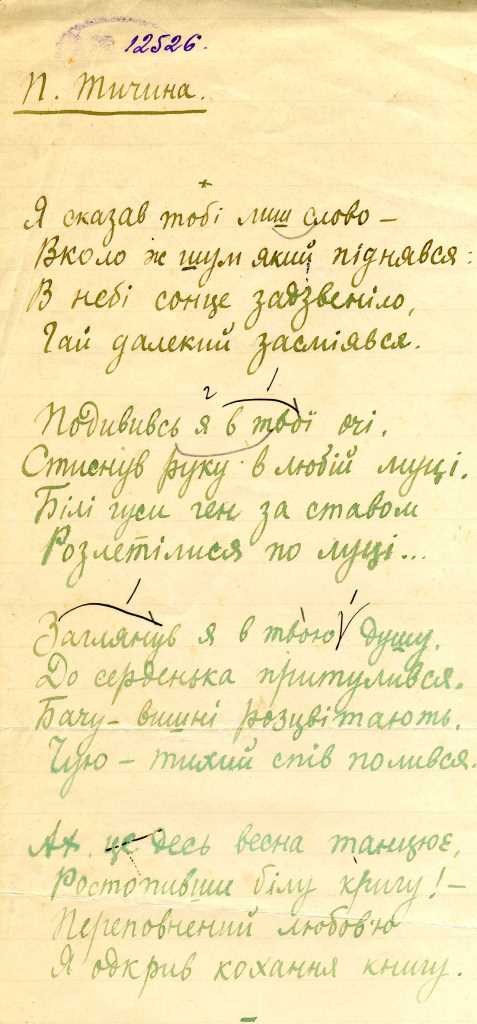 12526.
П. Тичина.
Я сказав тобі лиш слово –
Вколо ж шум який піднявся:
В небі сонце задзвеніло,
Гай далекий засміявся.
Подививсь я в твої очі,
Стиснув руку в любій муці.
Білі гуси ген за ставом
Розлетілися по луці...
Заглянув я в твою душу,
До серденька притулився.
Бачу – вишні розцвітають.
Чую – тихий спів полився.
Ах, це десь весна танцює,
Ростопивши білу кригу! –
Переповнений любов'ю
Я одкрив кохання книгу.